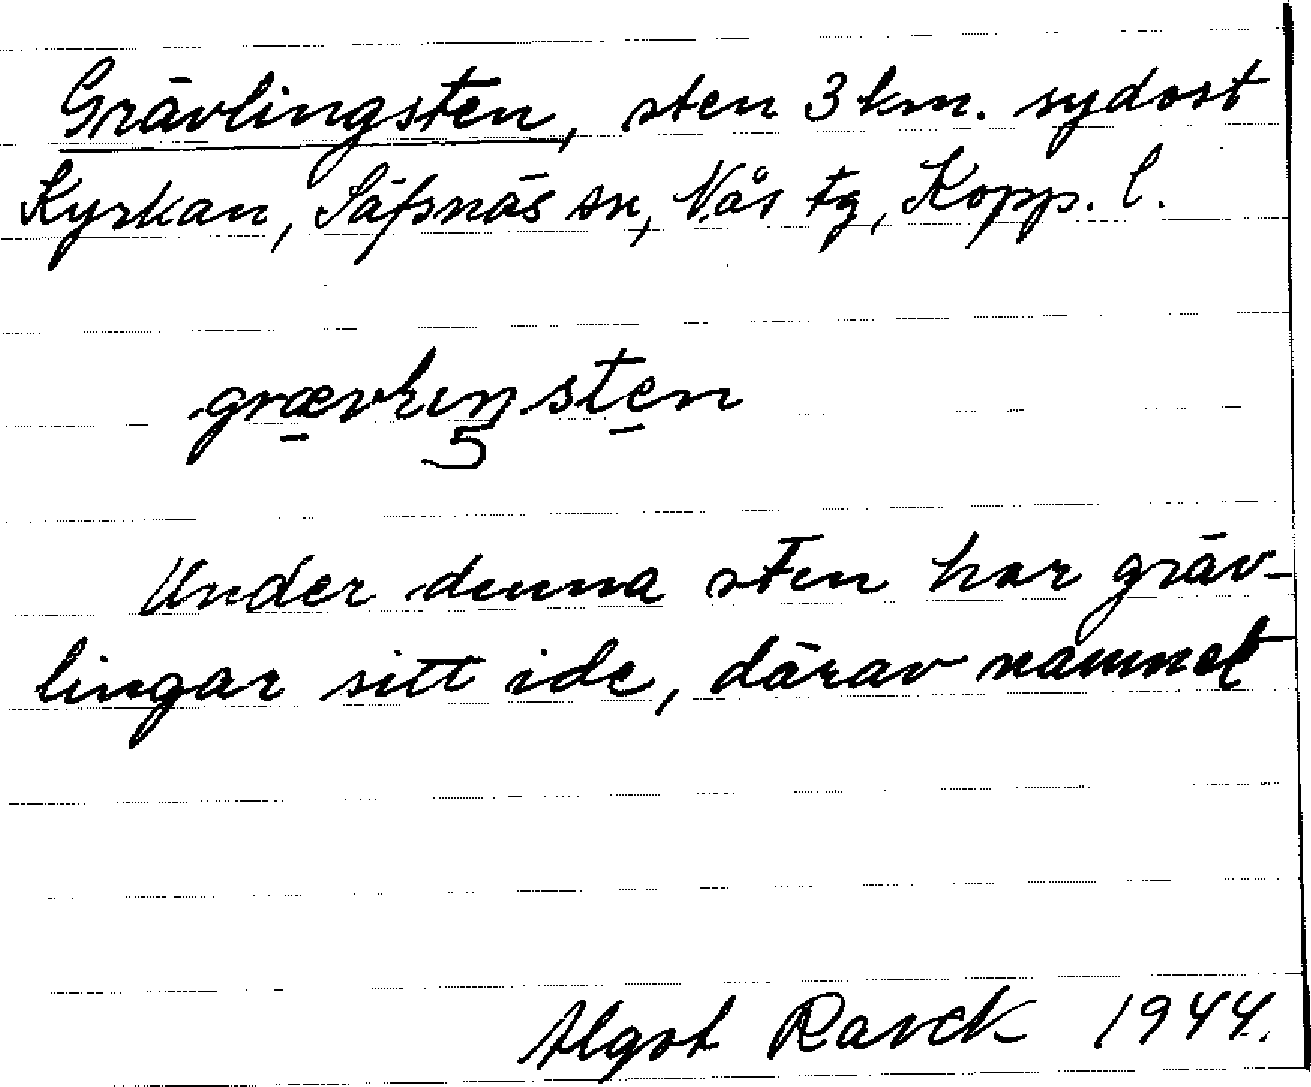 Grävlingsten, sten 3 km. sydost
Kyrkan, Säfsnäs sn, Nås tg, Kopp. l.
grævlıŋsten
Under denna sten har gräv-
lingar sitt ide, därav namnet
Algot Ravck 1944.